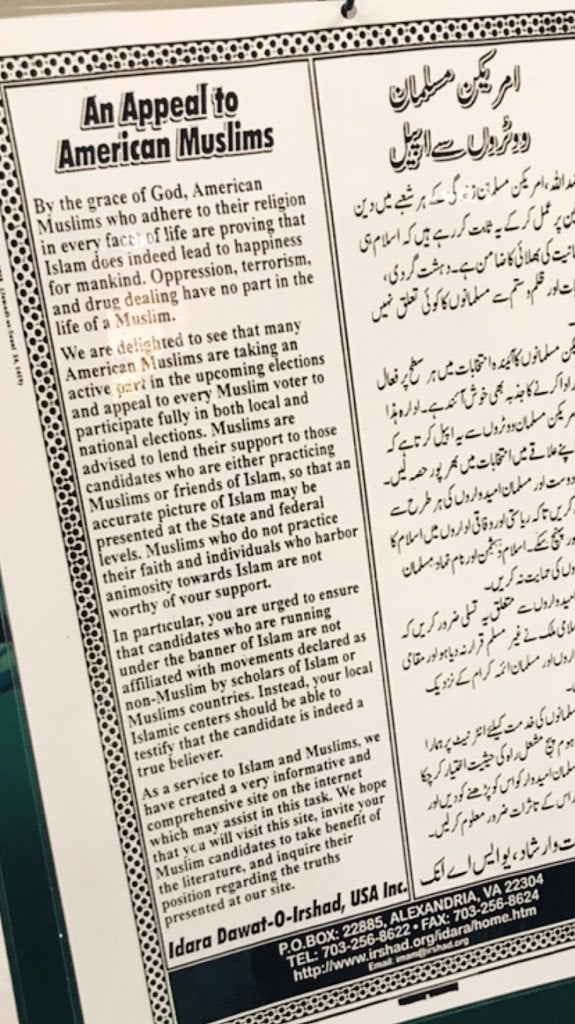 An Appeal to
American Muslims
By the grace of God, American
Muslims who adhere to their religion
in every facet of life are proving that
Islam does indeed lead to happiness
for mankind. Oppression, terrorism,
and drug dealing have no part in the
life of a Muslim.
We are delighted to see that many
American Muslims are taking an
active part in the upcoming elections
and appeal to every Muslim voter to
participate fully in both local and
national elections. Muslims are
advised to lend their support to those
candidates who are either practicing
Muslims or friends of Islam, so that an
accurate picture of Islam may be
presented at the State and federal
levels. Muslims who do not practice
their faith and individuals who harbor
animosity towards Islam are not
worthy of your support.
In particular, you are urged to ensure
that candidates who are running
under the banner of Islam are not
affiliated with movements declared as
non-Muslim by scholars of Islam or
Muslims countries. Instead, your local
Islamic centers should be able to
testify that the candidate is indeed a
true believer.
As a service to Islam and Muslims, we
have created a very informative and
comprehensive site on the internet
which may assist in this task. We hope
that you will visit this site, invite your
Muslim candidates to take benefit of
the literature, and inquire their
position regarding the truths
presented at our site.
Idara Dawat-O-Irshad, USA Inc.
امریکن مسلمان
ووٹروں سے اپیل
الله، امریکن مسلمان زندگی کے ہر شعبے میں دین
پر عمل کر کے یہ ثابت کر رہے ہیں کہ اسلام ہی
کی بھلائی کا ضامن ہے۔ دہشت گردی،
اور ظلم و ستم سے مسلمانوں کا کوئی تعلق نہیں
مسلمانوں کا آئندہ انتخابات میں ہر سطح پر فعال
ادا کرنے کا جذبہ بھی خوش آئند ہے۔ ادارہ ہذا
امریکن مسلمان ووٹروں سے یہ اپیل کرتا ہے کہ
اپنے علاقے میں انتخابات میں بھر پور حصہ لیں۔
دوست اور مسلمان امیدواروں کی ہر طرح سے
کریں تاکہ ریاستی اور وفاقی اداروں میں اسلام کا
پہنچ سکے۔ اسلام دشمن اور نام نہاد مسلمان
کی حمایت نہ کریں۔
امیدواروں سے متعلق یہ تسلی ضرور کریں کہ
ملک نے غیر مسلم قرار نہ دیا ہو اور مقامی
اور مسلمان ائمہ کرام کے نزدیک
مسلمانوں کی خدمت کیلئے انٹرنیٹ پر ہمارا
ہوم پیج مشعل راہ کی حیثیت اختیار کر چکا
مسلمان امیدوار کو اس کو پڑھنے کو دیں اور
اس کے تاثرات ضرور معلوم کر لیں۔
وارشاد، یو ایس اے انک
P.O.BOX: 22885, ALEXANDRIA, VA 22304
TEL: 703-256-8622 • FAX: 703-256-8624
http://www.irshad.org/idara/home.htm
Email: imam@irshad.org